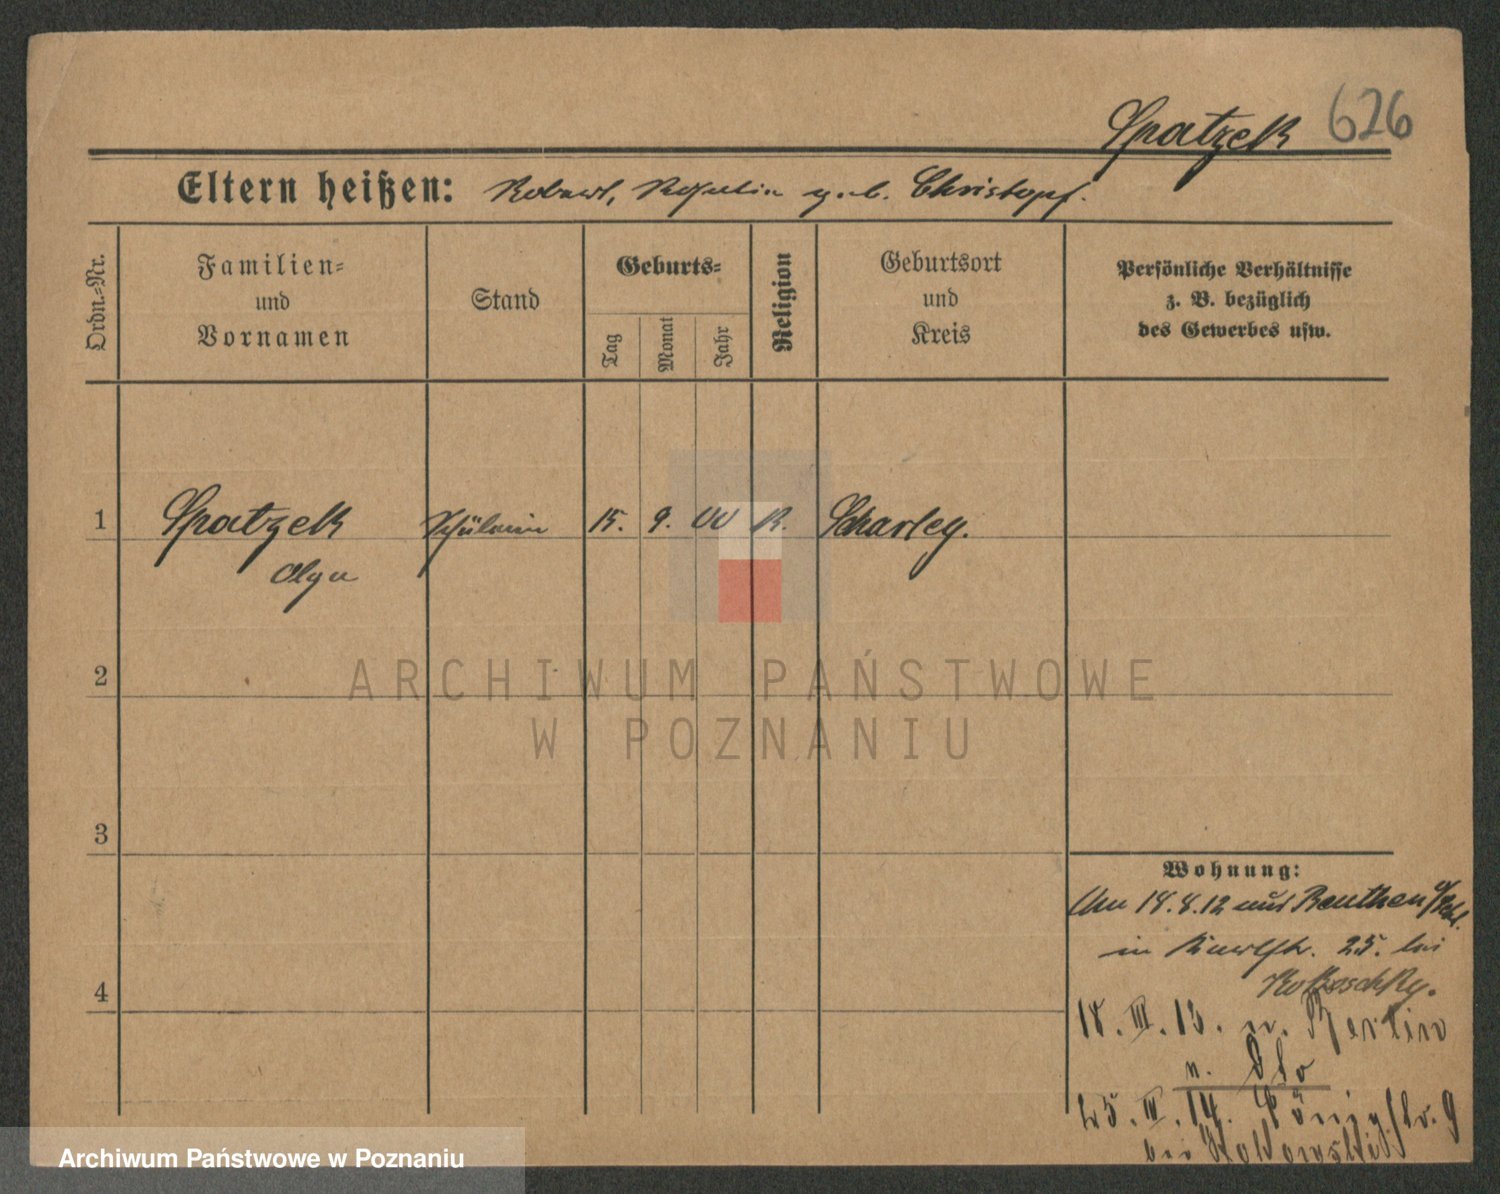 626
Spatzek
Eltern heißen: Robert, Rosalia geb. Christoph.
Ordn.-Nr.
Familien-
und
Vornamen
Stand
Geburts-
Tag
Monat
Jahr
Religion
Geburtsort
und
Kreis
Persönliche Verhältnisse
z. B. bezüglich
des Gewerbes usw.
1 Spatzek Schülerin 15. 9. 00 K. Scharley.
Olga
2
3
4
Wohnung:
Am 18.8.12 aus Beuthen
in 25. bei
18. III. 13. n. Berlin
n.
25. IV. 14. Königstr. 9
bei
ARCHIWUM PAŃSTWOWE
W POZNANIU
Archiwum Państwowe w Poznaniu